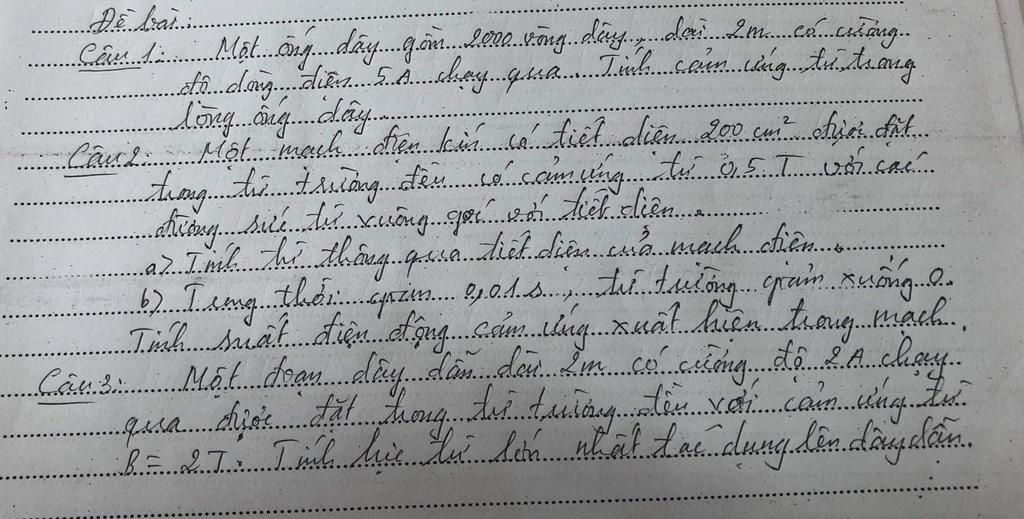 Đề bài:
Câu 1: Một ống dây gồm 2000 vòng dây, dài 2m có cường
độ dòng điện 5A chạy qua. Tính cảm ứng từ trong
lòng ống dây
Câu 2: Một mạch điện kín có tiết diện 200 cm² được đặt
trong từ trường đều có cảm ứng từ 0,5 T với các
đường sức từ vuông góc với tiết diện.
a> Tính từ thông qua tiết diện của mạch điện.
b) Trong thời gian 0,01s, từ trường giảm xuống 0.
Tính suất điện động cảm ứng xuất hiện trong mạch.
Câu 3: Một đoạn dây dẫn dài 2m có cường độ 2A chạy
qua được đặt trong từ trường đều với cảm ứng từ
B = 2T. Tính lực từ lớn nhất tác dụng lên dây dẫn.